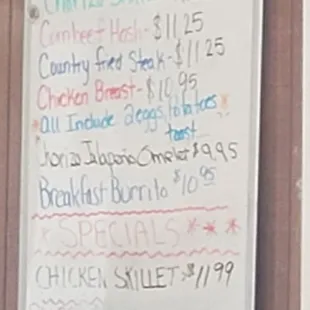 Chorizo
Cornbeef Hash - $11.25
Country fried Steak - $11.25
Chicken Breast - $10.95
*All Include 2 eggs, potatoes *
toast
Chorizo Jalapeño Omelet $9.95
Breakfast Burrito $10.95
* SPECIALS * * *
CHICKEN SKILLET $11.99